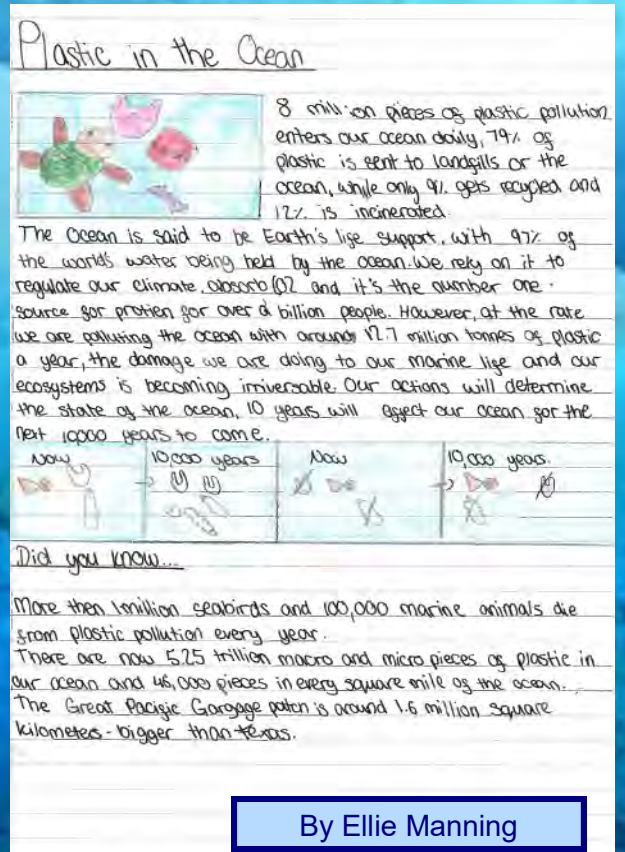 Plastic in the Ocean
8 million pieces of plastic pollution
enters our ocean daily, 79% of
plastic is sent to landfills or the
ocean, while only 9% gets recycled and
12% is incinerated.
The Ocean is said to be Earth's life support, with 97% of
the world's water being held by the ocean. We rely on it to
regulate our climate, absorb CO2 and it's the number one
source for protien for over a billion people. However, at the rate
we are polluting the ocean with around 12.7 million tonnes of plastic
a year, the damage we are doing to our marine life and our
ecosystems is becoming irriversable. Our actions will determine
the state of the ocean, 10 years will effect our ocean for the
next 10000 years to come.
Now 10,000 years Now 10,000 years.
Did you know...
More then 1 million seabirds and 100,000 marine animals die
from plastic pollution every year.
There are now 5.25 trillion macro and micro pieces of plastic in
our ocean and 46,000 pieces in every square mile of the ocean.
The Great Pacific Gargage patch is around 1.6 million square
kilometers - bigger than texas.
By Ellie Manning